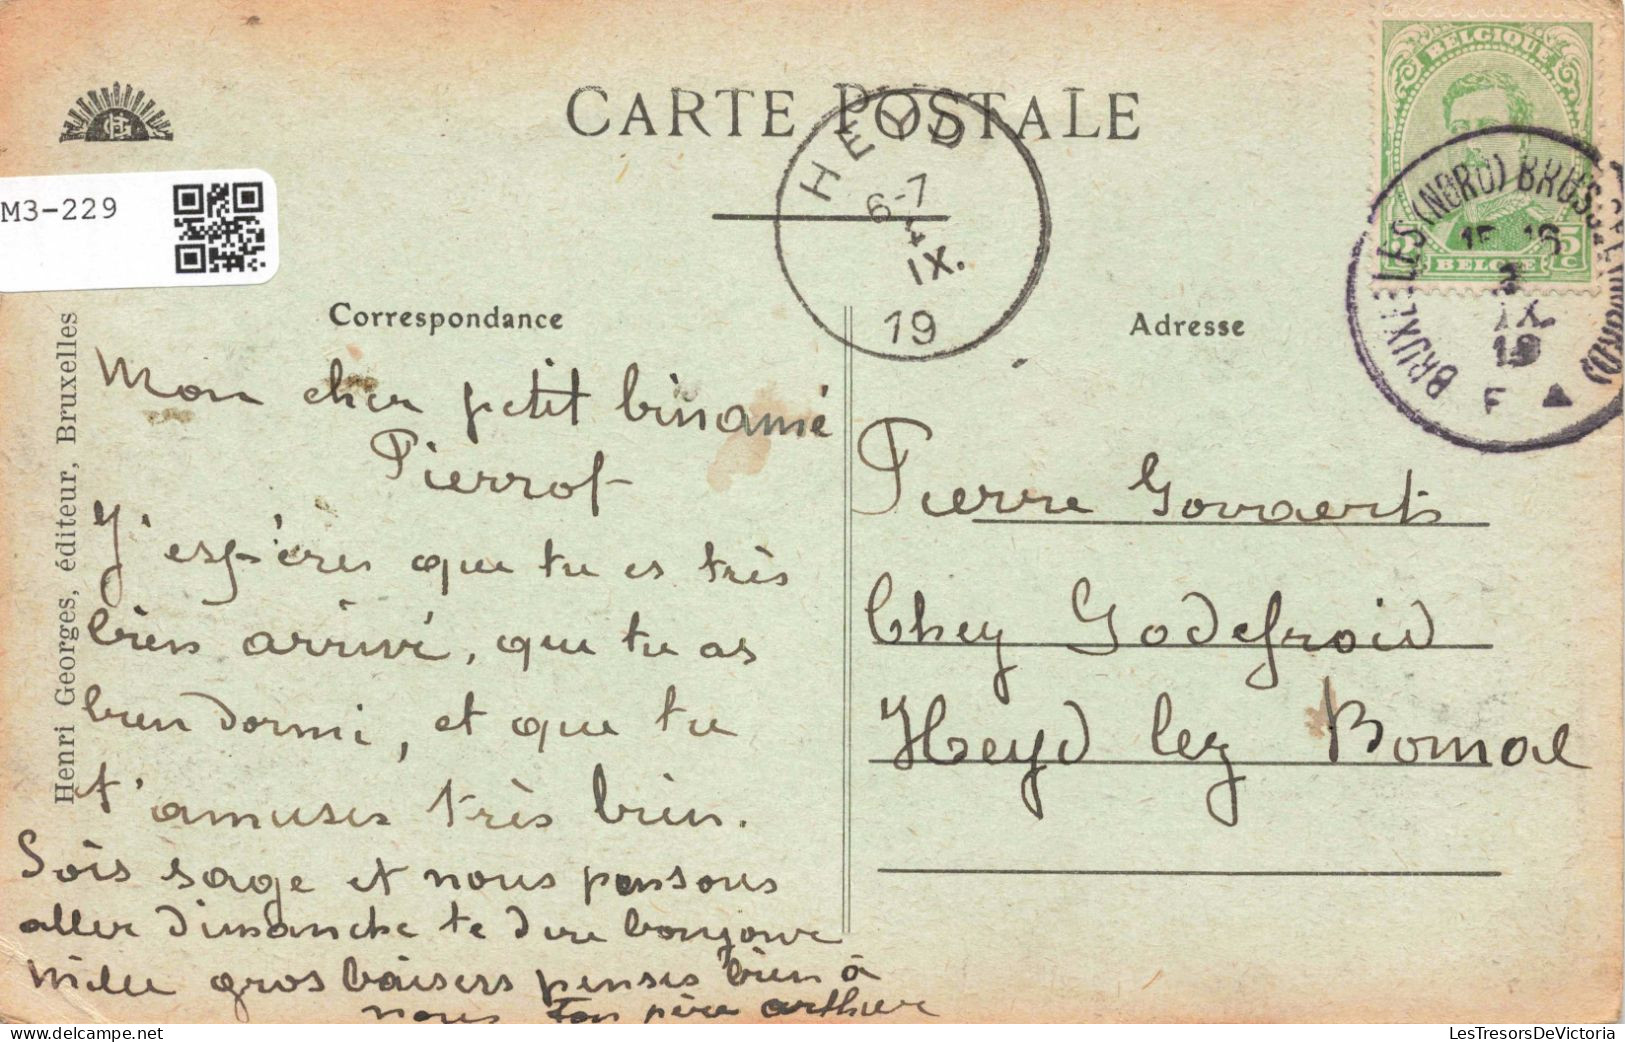 CARTE POSTALE
HEYD
6-7
4
IX.
19
BELGIQUE
5 C
BELGIE
BRUXELLES (NORD) BRUSSEL (NOORD)
IX
19
F
M3-229
Henri Georges, éditeur, Bruxelles
Correspondance
Mon cher petit binamé
Pierrot
J'espères que tu es très
bien arrivé, que tu as
bien dormi, et que tu
t'amuses très bien.
Sois sage et nous pensons
aller dimanche te dire bonjour
mille gros baisers penses bien à
nous Ton père arthur
Adresse
Pierre Govaerts
Chez Godefroid
Heyd lez Bomal
LesTresorsDeVictoria